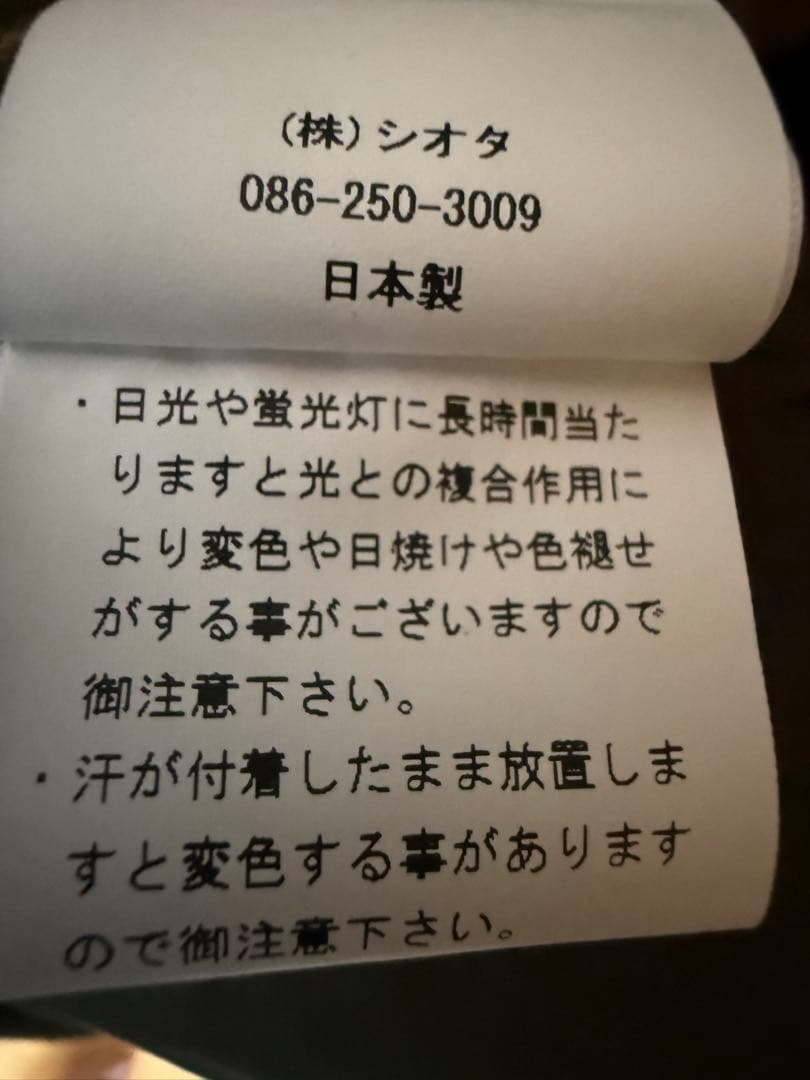 (株)シオタ
086-250-3009
日本製
・日光や蛍光灯に長時間当た
りますと光との複合作用に
より変色や日焼けや色褪せ
がする事がございますので
御注意下さい。
・汗が付着したまま放置しま
すと変色する事があります
ので御注意下さい。